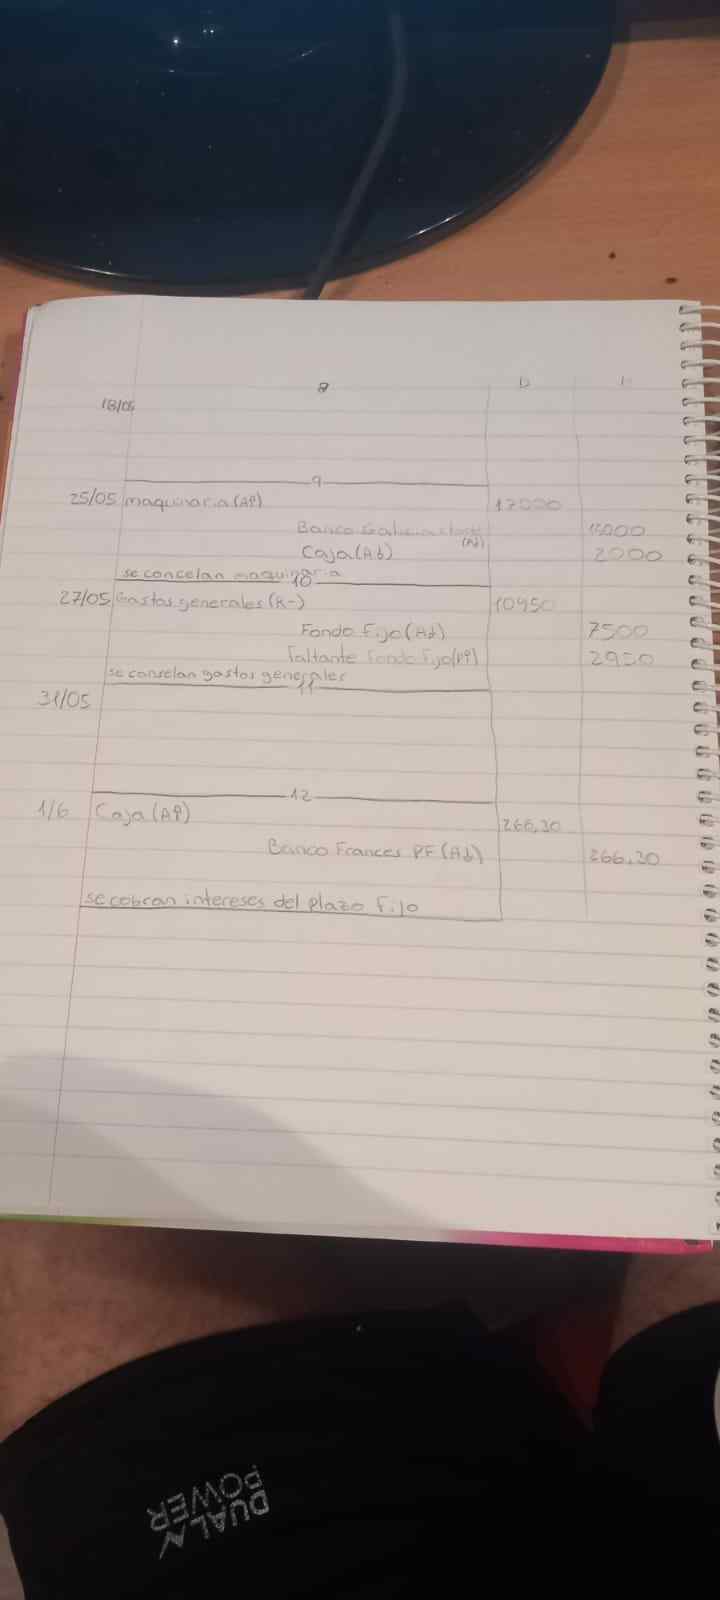 8 D H
18/05
9
25/05 maquinaria(AP) 17000
Banco Galicia cta cte (Ad) 15000
Caja(Ad) 2000
se concelan maquinaria
10
27/05 Gastos generales(R-) 10950
Fondo Fijo(Ad) 7500
Faltante Fondo Fijo(P?) 2950
se conselan gastos generales
11
31/05
12
1/6 Caja(AP) 266,30
Banco Frances PF(Ad) 266,30
se cobran intereses del plazo Fijo
DUAL
POWER